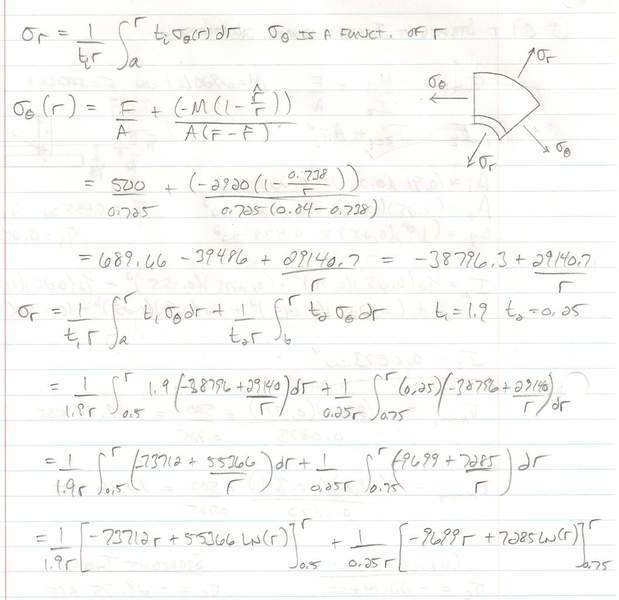 σr = 1/(t₂r) ∫ₐʳ t₂ σθ(r) dr   σθ IS A FUNCT. OF r
σr
σθ
σθ
σr
σθ(r) = F/A + (-M(1 - r̂/r))/(A(r̄ - r̂))
= 500/0.725 + (-2920(1 - 0.738/r))/(0.725(0.84 - 0.738))
= 689.66 - 39486 + 29140.7/r = -38796.3 + 29140.7/r
σr = 1/(t₁r) ∫ₐʳ t₁ σθ dr + 1/(t₂r) ∫_b^r t₂ σθ dr   t₁ = 1.9   t₂ = 0.25
= 1/(1.9r) ∫_0.5^r 1.9(-38796 + 29140/r) dr + 1/(0.25r) ∫_0.75^r (0.25)(-38796 + 29140/r) dr
= 1/(1.9r) ∫_0.5^r (-73712 + 55366/r) dr + 1/(0.25r) ∫_0.75^r (-9699 + 7285/r) dr
= 1/(1.9r) [-73712r + 55366 LN(r)]_0.5^r + 1/(0.25r) [-9699r + 7285 LN(r)]_0.75^r